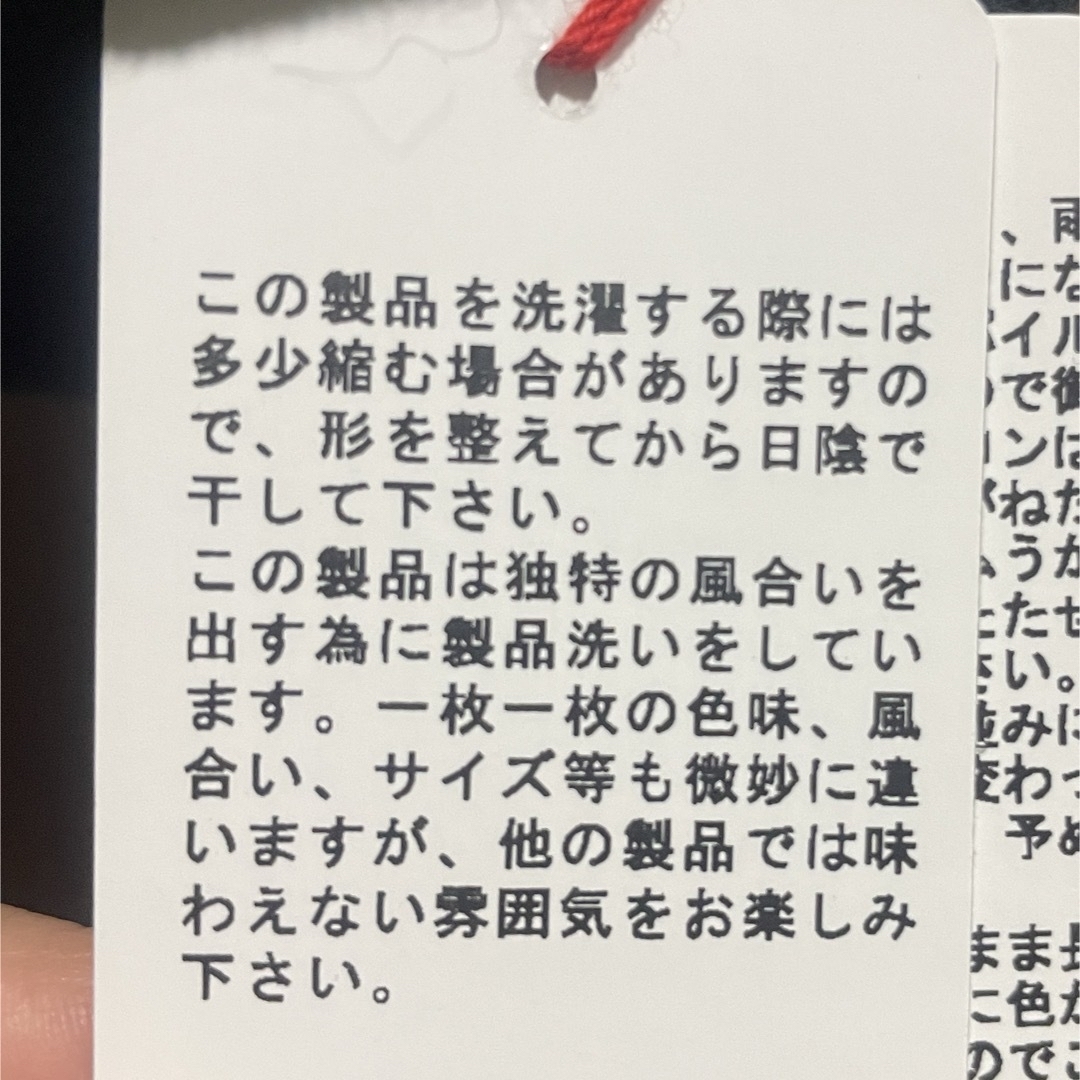 この製品を洗濯する際には
多少縮む場合がありますの
で、形を整えてから日陰で
干して下さい。
この製品は独特の風合いを
出す為に製品洗いをしてい
ます。一枚一枚の色味、風
合い、サイズ等も微妙に違
いますが、他の製品では味
わえない雰囲気をお楽しみ
下さい。
、雨
にな
イル
で御
ンは
ねた
うか
たせ
い。
みに
変わっ
予め
まま長
に色が
のでご